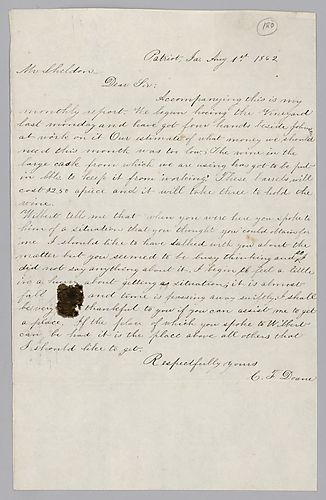 120
Patriot, Ia. Aug 1st 1862
Mr Sheldon
Dear Sir;
Accompanying this is my
monthly report. We begun hoeing the vineyard
last monday and have got four hands beside John
at work on it Our estimate of what money we should
need this month was too low; The wine in the
large cask from which we are using has got to be put
in bbls to keep it from working These barrels will
cost $2.50 apiece and it will take three to hold the
wine.
Wilbert tells me that when you were here you spoke to
him of a situation that you thought you could obtain for
me I should like to have talked with you about the
matter but you seemed to be busy thinking and I
did not say anything about it. I begin to feel a little
in a hurry about getting a situation; it is almost
fall and time is passing away swiftly. I shall
be very thankful to you if you can assist me to get
a place. If the place of which you spoke to Wilbert
can be had it is the place above all others that
I should like to get.
Respectfully yours
C. F. Doane